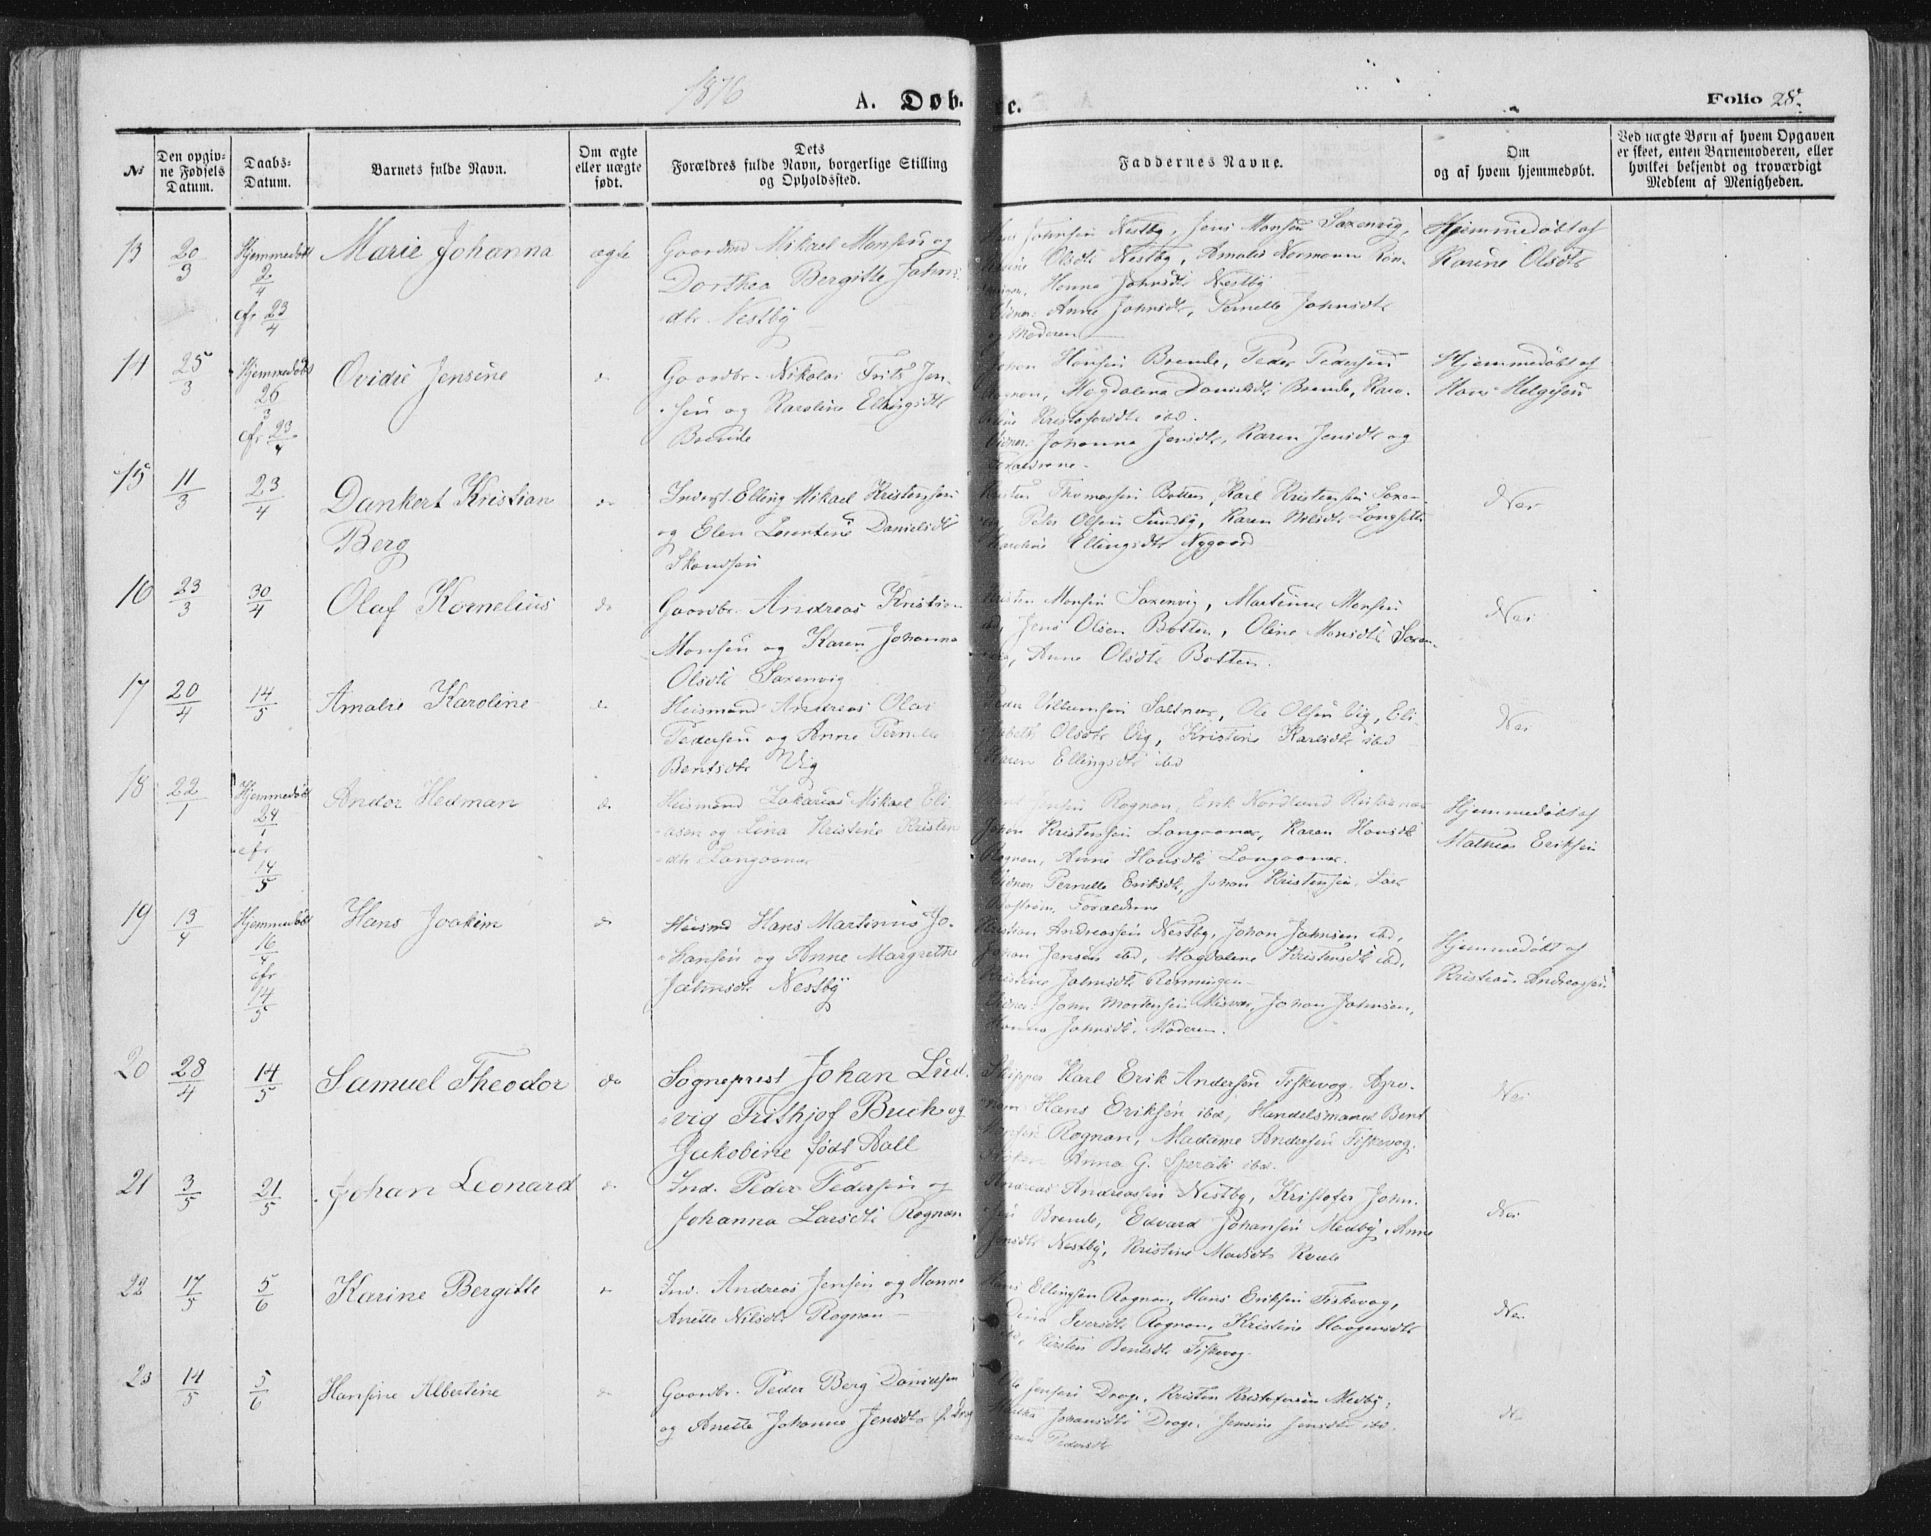 1876
A. Døb. te. Folio 28.
№ | Den opgivne Fødsels Datum. | Daabs-Datum. | Barnets fulde Navn. | Om ægte eller uægte født. | Dets Forældres fulde Navn, borgerlige Stilling og Opholdssted. | Faddernes Navne. | Om og af hvem hjemmedøbt. | Ved uægte Børn af hvem Opgaven er skeet, enten Barnemoderen, eller hvilket beljendt og troværdigt Medlem af Menigheden.
13 20/3 Hjemmedøbt 2/4 cfr 23/4
Marie Johanna
ægte
Gaardmd Mikael Monsen og
Dorthea Bergitte John-
dtr. Nestby
Johnsen Nestby, Jens Monsen Saxenvig,
Olsdtr Nestby, Amalie Normann
Hanna Johnsdtr Nestby
Anne Johnsdtr, Pernelle Johnsdtr
og Moderen
Hjemmedøbt af
Karine Olsdtr
14 25/3 Hjemmedøbt 26/3 cfr 23/4
Ovidie Jensine
do
Gaardbr. Nikolai Fritz Jen-
sen og Karoline Ellingsdtr
Brende
Hansen Brende, Peder Pedersen
Magdalena Danielsdtr Brende, Karo-
Kristofersdtr ibd.
Johanna Jensdtr, Karen Jensdtr og
Forældrene.
Hjemmedøbt af
Hans Helgesen
15 11/3 23/4
Dankert Kristian
Berg
do
Inderst Elling Mikael Kristensen
og Elen Lorentine Danielsdtr
Skandsen
Thomassen Botten, Karl Kristensen Saxen-
Peter Olsen Sundby, Karen Nilsdtr
Karoline Ellingsdtr Nygaard
Nei
16 23/3 30/4
Olaf Kornelius
do
Gaardbr. Andreas Kristian
Monsen og Karen Johanna
Olsdtr Saxenvig
Monsen Saxenvig, Martinus Monsen
Jens Olsen Botten, Oline Monsdtr Saxen-
Anne Olsdtr Botten.
Nei
17 20/4 14/5
Amalie Karoline
do
Huismand Andreas Olai
Pedersen og Anne Pernelle
Bentsdtr Vig
Peder Villumsen Saltnes, Ole Olsen Vig, Eli-
sabeth Olsdtr Vig, Kristine Karlsdtr ibd
Karen Ellingsdtr ibd
Nei
18 22/1 Hjemmedøbt 24/1 cfr 14/5
Andor Hedman
do
Huismand Zakarias Mikael Eli-
asen og Lina Kristine Kristen-
dtr Langaanes
Jensen Rognan, Erik Nordlund
Johan Kristensen Langaanes, Karen Hansdtr
Rognan, Anne Hansdtr Langaanes.
Vidner Pernelle Eriksdtr, Johan Kristensen, Lars
Forældrene
Hjemmedøbt af
Mathias Eriksen
19 13/4 Hjemmedøbt 16/4 cfr 14/5
Hans Joakim
do
Huismd Hans Martinus Jo-
hansen og Anne Margrethe
Johnsdtr Nestby
Kristian Andreassen Nestby, Johan Johnsen ibd,
Johan Jensen ibd, Magdalene Kristensdtr ibd,
Kristine Johnsdtr Rønningen
Vidner: John Mortensen Misvær, Johan Johnsen,
Hanna Johnsdtr, Moderen.
Hjemmedøbt af
Kristian Andreassen
20 28/4 14/5
Samuel Theodor
do
Sogneprest Johan Lud-
vig Frithjof Buch og
Jakobine født Aall
Skipper Karl Erik Andersen Fiskevog, Agro-
nom Hans Eriksen ibd, Handelsmand Bent
Rognan, Madame Andersen Fiskevog,
Frøken Anna G. Sperati ibd.
Nei
21 3/5 21/5
Johan Leonard
do
Ind. Peder Pedersen og
Johanna Larsdtr Rognan
Andreas Andreassen Nestby, Kristofer John-
sen Brende, Edvard Johansen Medby, Anne
Jensdtr Nestby, Kristine Madsdtr
Nei
22 17/5 5/6
Karine Bergitte
do
Ind. Andreas Jensen og Hanna
Anette Nilsdtr Rognan
Hans Ellingsen Rognan, Hans Eriksen Fiskevog,
Iversdtr Rognan, Kristine Haagensdtr
ibd, Kirsten Bentsdtr Fiskevog
Nei
23 14/5 5/6
Hansine Albertine
do
Gaardbr. Peder Berg Danielsen
og Anette Johanne Jensdtr
Jensen Drage, Kristen Kristofersen Medby,
Johansdtr Drage, Jensine Jensdtr ibd.
Pedersdtr